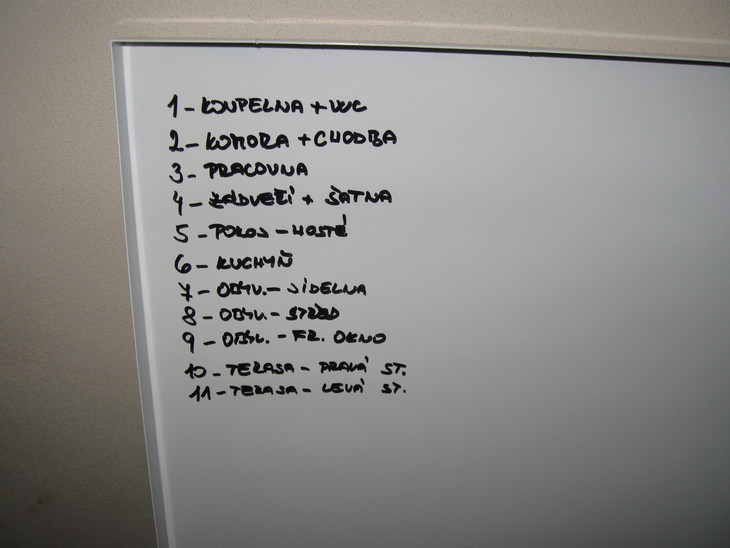 1 - KOUPELNA + WC
2 - KOMORA + CHODBA
3 - PRACOVNA
4 - ZÁDVEŘÍ + ŠATNA
5 - POKOJ - HOSTÉ
6 - KUCHYŇ
7 - OBÝV. - JÍDELNA
8 - OBÝV. - STŘED
9 - OBÝV. - FR. OKNO
10 - TERASA - PRAVÁ ST.
11 - TERASA - LEVÁ ST.